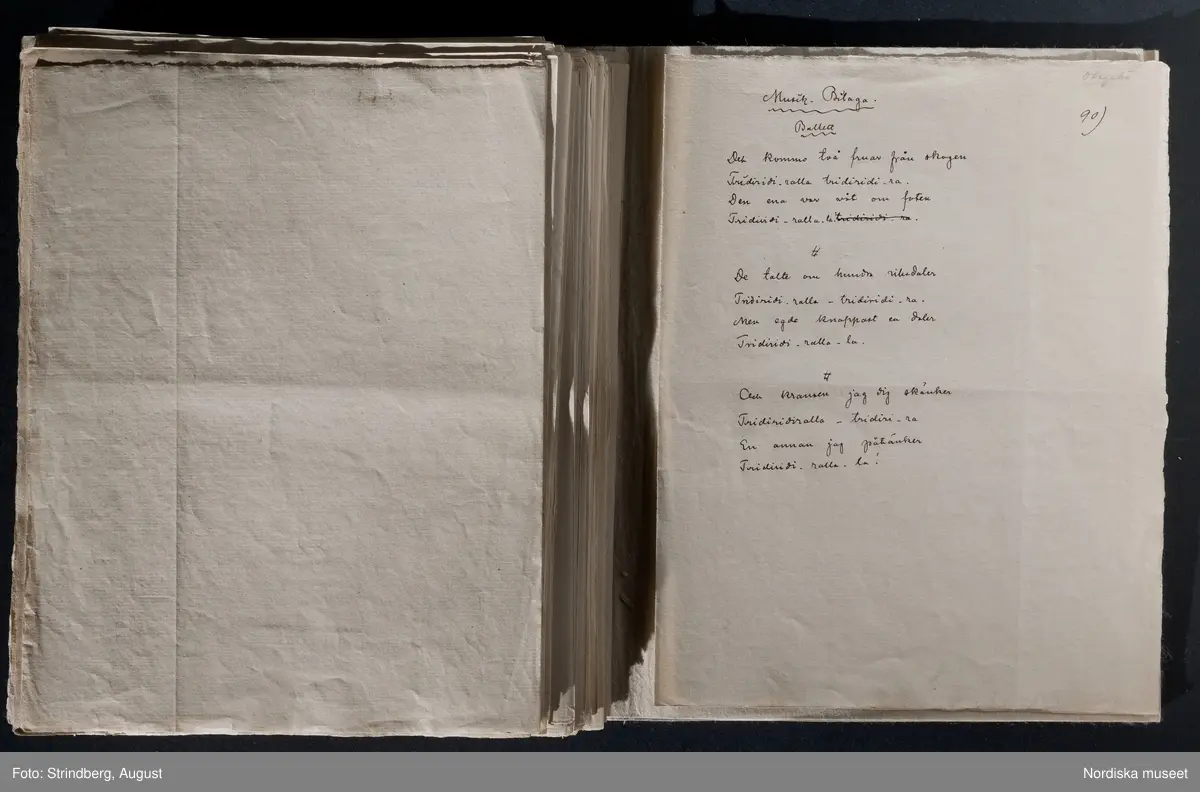 90)
Musik-Bilaga.
Ballett
Det kommo två fruar från skogen
Tridiridi-ralla tridiridi-ra.
Den ena var våt om foten
Tridiridi-ralla-la tridiridi-ra.
#
De talte om hundra riksdaler
Tridiridi-ralla-tridiridi-ra.
Men egde knappast en daler
Tridiridi-ralla-la.
#
Och kransen jag dig skänker
Tridiridiralla-tridiri-ra
En annan jag påtänker
Tridiridi-ralla-la!
Foto: Strindberg, August
Nordiska museet